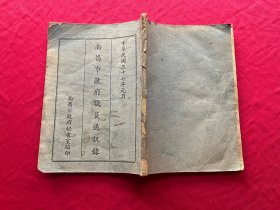 中華民國三十七年元月
南昌市政府職員通訊錄
南昌市政府秘書室編印